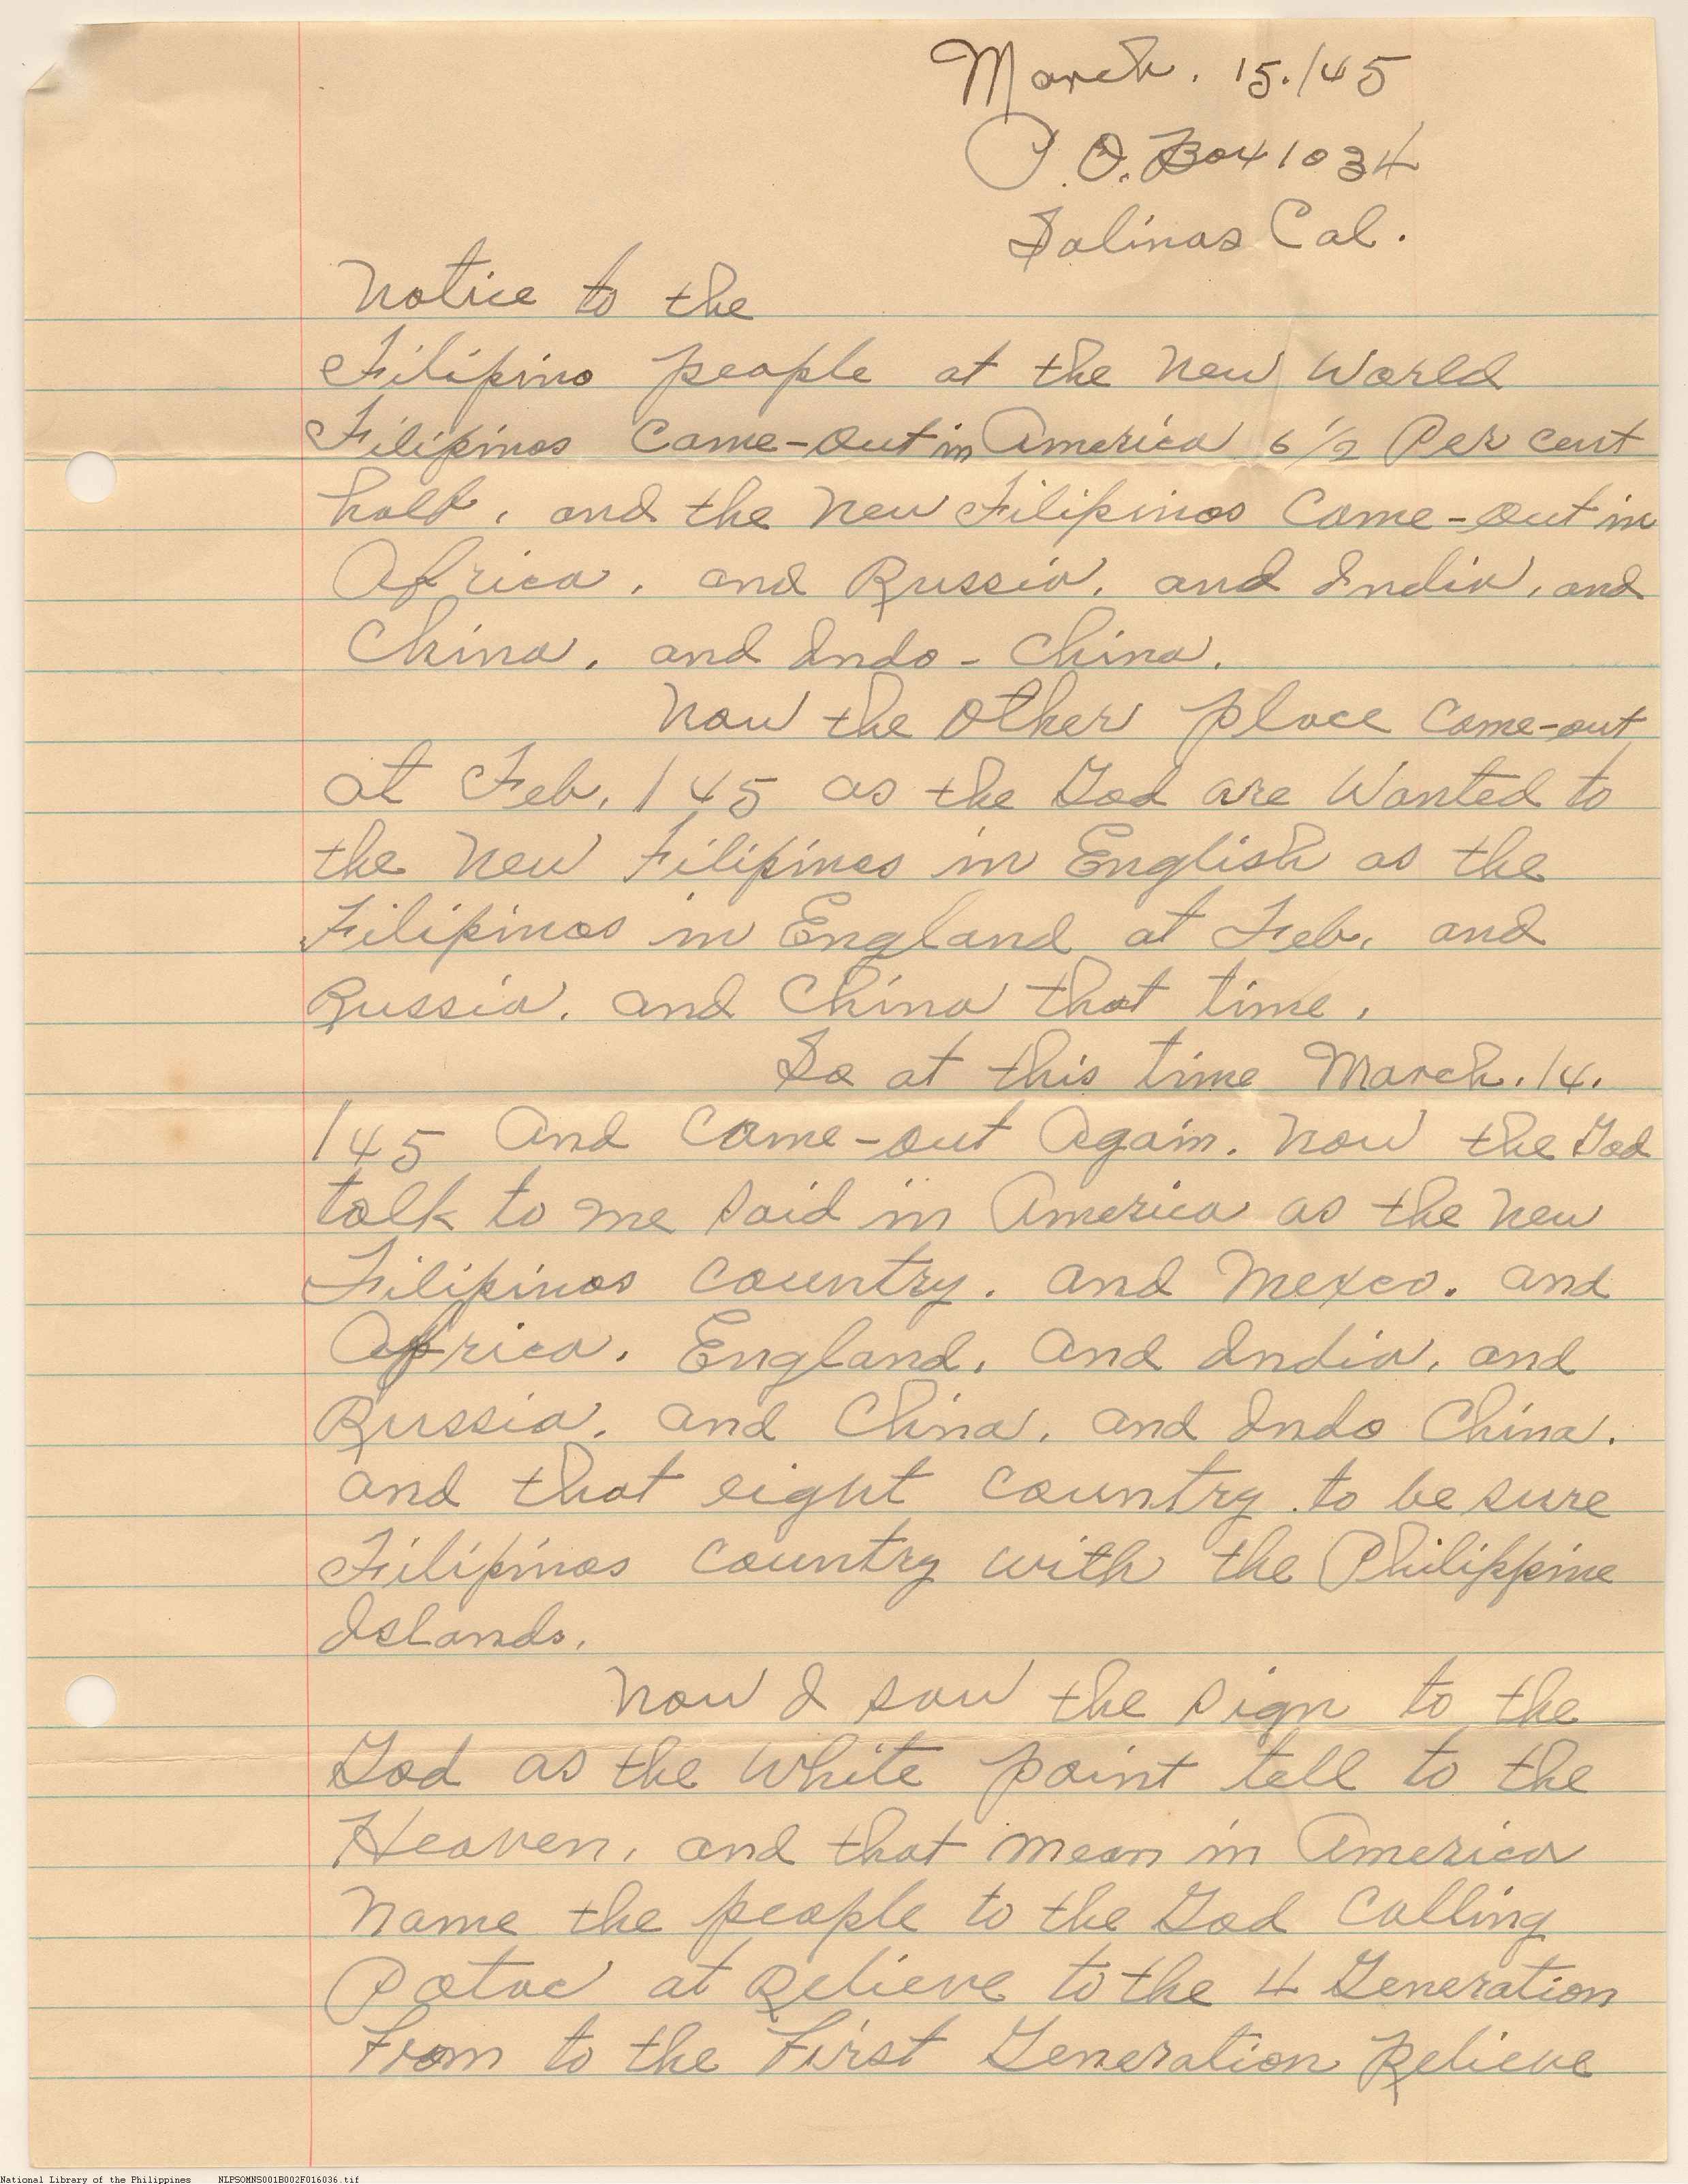 March. 15./45
P.O. Box 1034
Salinas Cal.
Notice to the
Filipino people at the New World
Filipinos Come-Out in America 6 1/2 Per cent
half, and the New Filipinos Come-out in
Africa, and Russia, and India, and
China, and Indo-China.
Now the other place Come-out
at Feb, / 45 as the God are Wanted to
the New Filipinos in English as the
Filipinos in England at Feb, and
Russia, and China that time,
So at this time March. 14.
/ 45 and Come-out Again. Now the God
talk to me said in America as the New
Filipinos Country. and Mexeco. and
Africa, England, and India, and
Russia, and China, and Indo China.
and that eight Country to be sure
Filipinos Country with the Philippine
Islands.
Now I saw the sign to the
God as the White point tell to the
Heaven, and that mean in America
Name the people to the God Calling
Patac at Relieve to the 4 Generation
From to the First Generation Relieve
National Library of the Philippines NLPSOMNS001B002F016036.tif